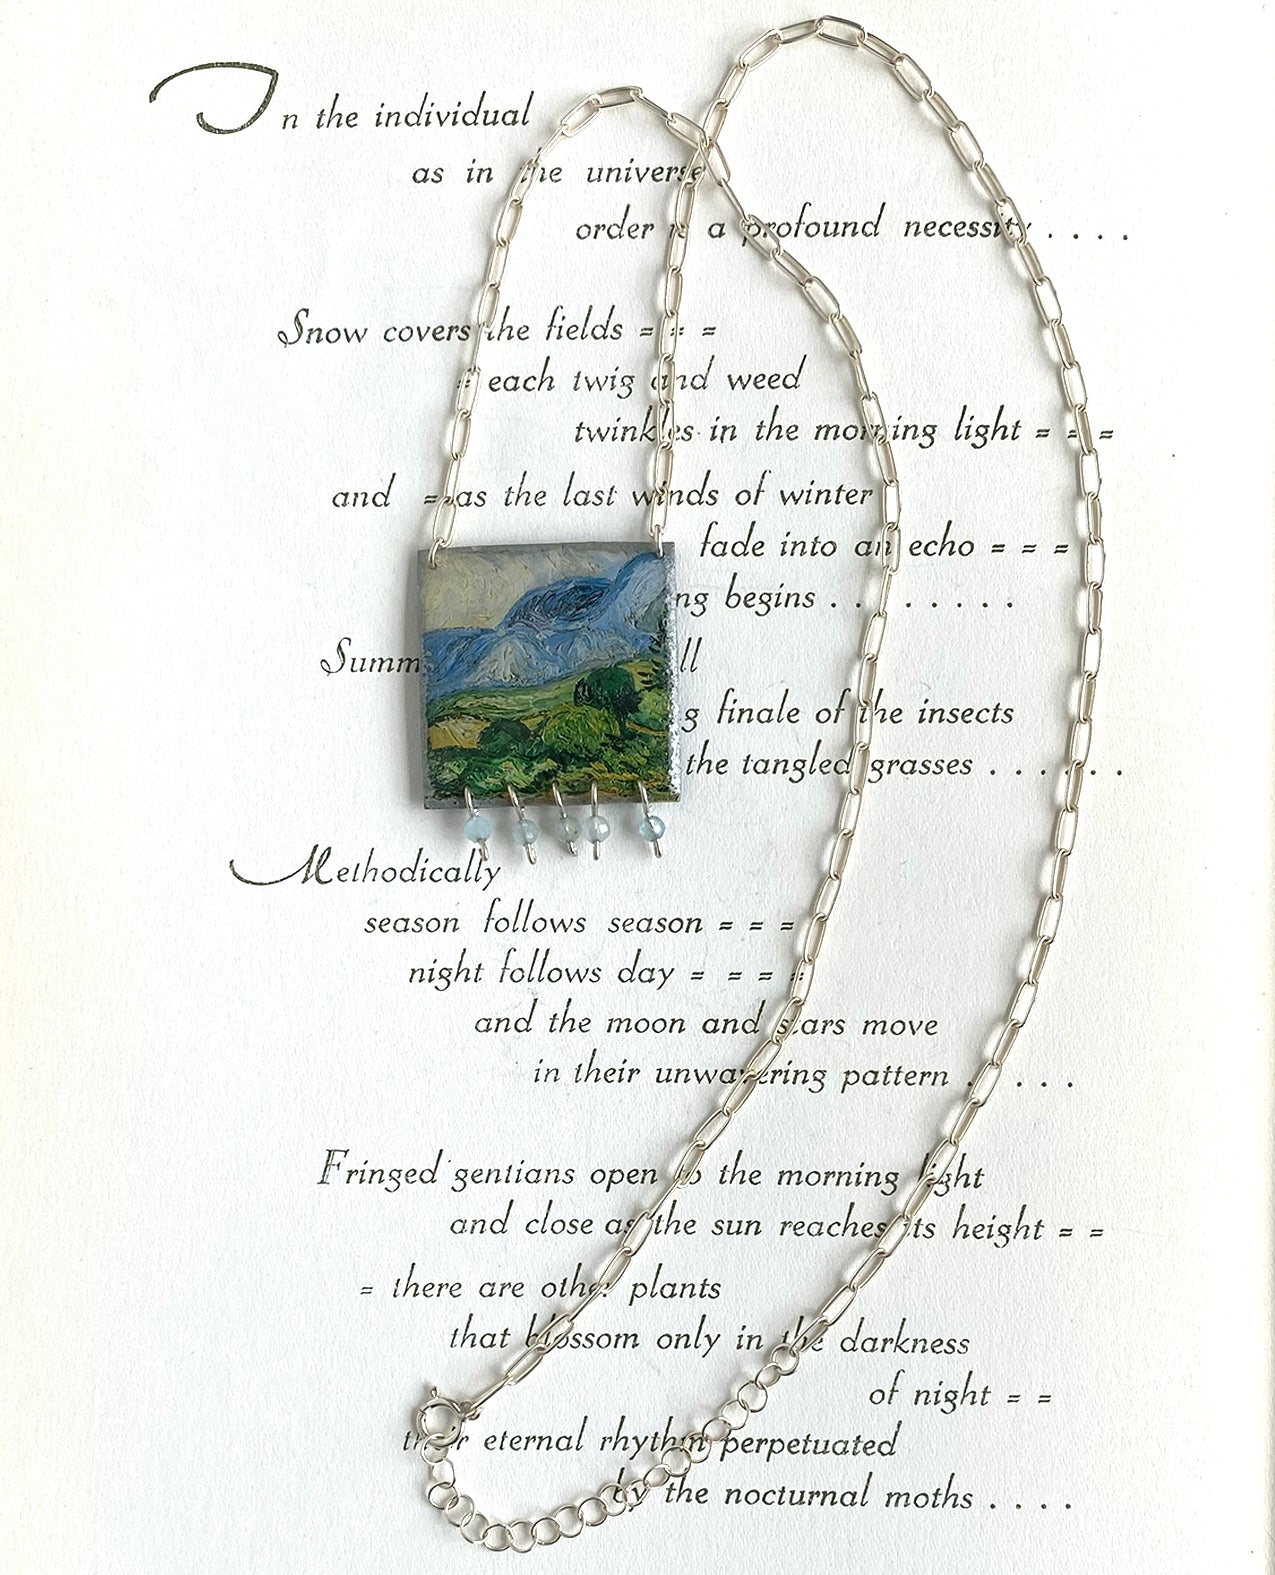 In the individual
as in the universe
order is a profound necessity . . . .
Snow covers the fields = = =
= each twig and weed
twinkles in the morning light = = =
and = as the last winds of winter
fade into an echo = = =
ng begins . . . . . . . .
Summ ll
g finale of the insects
the tangled grasses . . . . . .
Methodically
season follows season = = =
night follows day = = = =
and the moon and stars move
in their unwavering pattern . . . .
Fringed gentians open to the morning light
and close as the sun reaches its height = =
= there are other plants
that blossom only in the darkness
of night = =
their eternal rhythm perpetuated
by the nocturnal moths . . . .